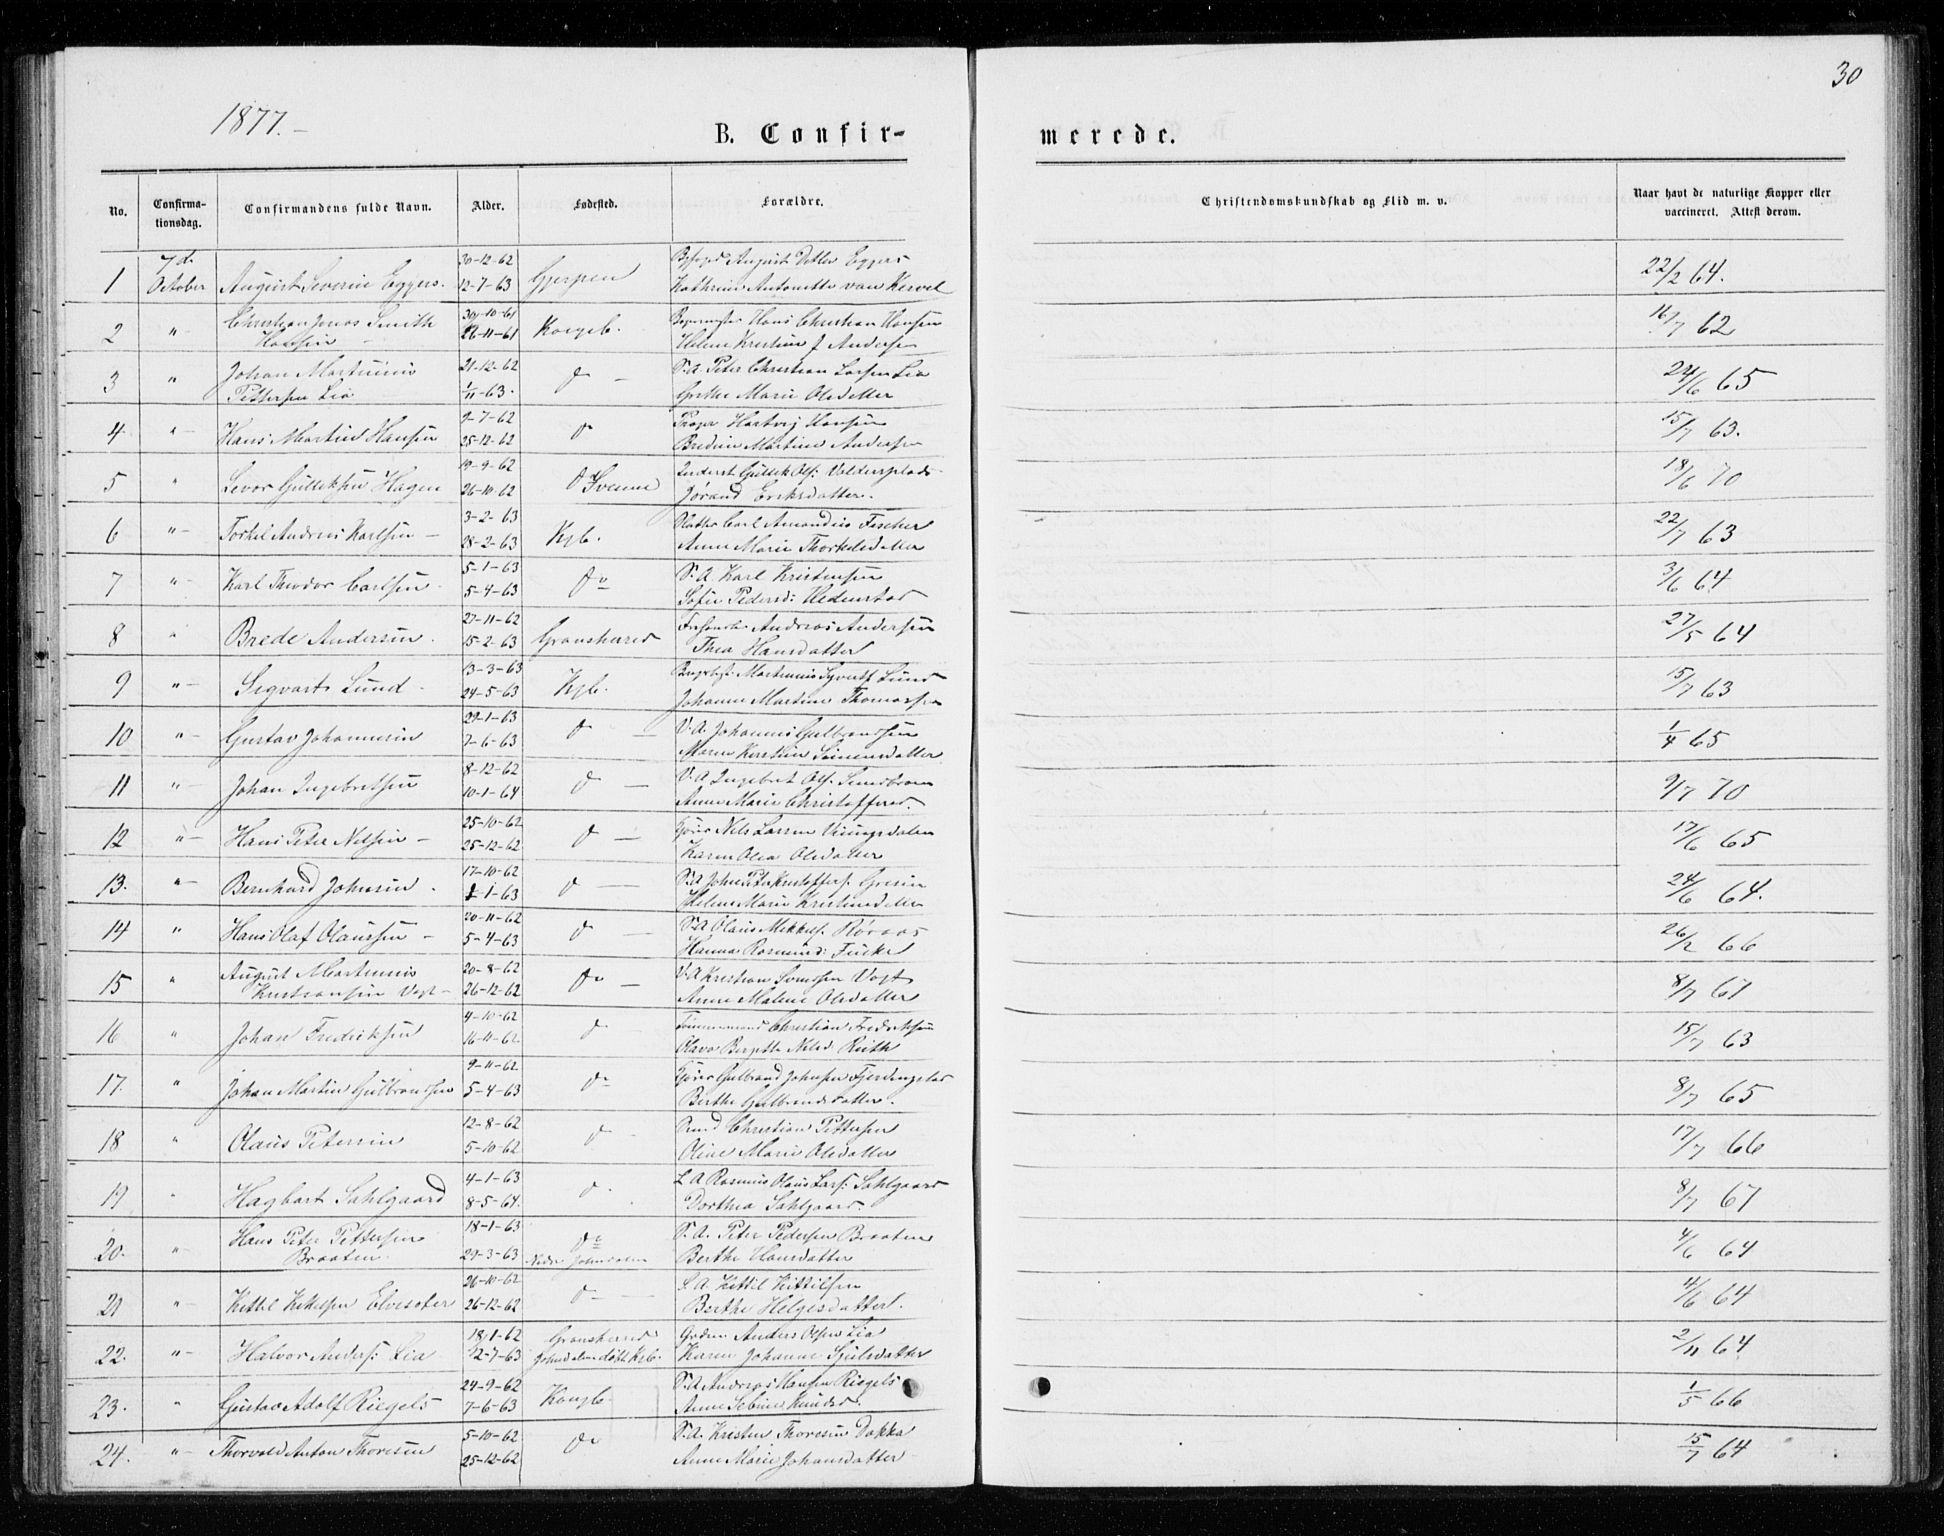 1877.
30
B. Confir-
merede.
No.
Confirma-
tionsdag.
Confirmandens fulde Navn.
Alder.
Fødested.
Forældre.
Christendomskundskab og Flid m. v.
Naar havt de naturlige Kopper eller
vaccineret. Attest derom.
1 7de October August Severin Eggers. 30-12-62 12-7-63 Gjerpen August Detlev Eggers Kathrine Antonette van Kervel 22/2 64.
2 " Christian Jonas Smith Hansen 30-10-61 -11-61 Kongsb. Hans Christian Hansen Helene Kristine J Andersen 16/7 62
3 " Johan Martinius Pettersen Lia 21-12-62 1/11-63. do S. A. Peter Christian Larsen Lia Grethe Marie Olsdatter 24/6 65
4 " Hans Martin Hansen 2-7-62 25-12-62 do Hartvig Hansen Bredine Martine Andersen 15/7 63.
5 " Levor Gulliksen Hagen 19-9-62 26-10-62 do Svenne Gullik Ols: Valdersplads Jørand Eriksdatter. 18/6 70
6 " Torkel Andreas Karlsen 3-2-63 28-2-63 Kgb. Carl Amandius Fischer Anne Marie Thorkildsdatter 22/7 63
7 " Karl Theodor Carlsen 5-1-63 5-4-63 do S. A. Karl Kristensen Sofie Pedersd: Hedenstad 3/6 64
8 " Brede Andersen. 27-11-62 15-2-63 Gransherred Andreas Andersen Thea Hansdatter 27/5 64
9 " Sigvart Lund 13-3-63 24-5-63 Kgb. Martinius Syverts Lund Johanne Martine Thomassen 15/7 63
10 " Gustav Johannesen 29-1-63 7-6-63 do V. A. Johannes Gulbrandsen Maren Kirstine Simensdatter 1/4 65
11 " Johan Ingebretsen 8-12-62 10-1-64 do V. A Ingebret Ols. Anne Marie Christoffersd. 9/7 70
12 " Hans Peter Nelsen 25-10-62 25-12-62 do Nels Larsen Vinngsdalen Karen Olea Olsdatter 17/6 65
13. " Bernhard Johnsen. 17-10-62 1-1-63 do S.A John Peter Kristoffers. Helene Marie Kristiansdatter 24/6 64.
14 " Hans Olaf Olaussen 20-11-62 5-4-63 do S.A Olaus Mekkels. Røraas Hanna Rosmund: 26/2 66
15 " August Martinius Kristiansen Vogt 20-8-62 26-12-62 do V. A Kristian Svendsen Vogt Anne Malene Olsdatter 8/7 67
16 " Johan Fredriksen 4-10-62 16-11-62 do Tømmermand Christian Fredriksen Olava Bergitte Nilsd. Ruth 15/7 63
17. " Johan Martin Gulbrandsen 9-11-62 5-4-63 do Gulbrand Johnsen Fjerdingstad Berthe Gulbrandsdatter. 8/7 65
18 " Olaus Petersen 12-8-62 5-10-62 do Smed Christian Pettersen Oline Marie Olsdatter 17/7 66
19 " Hagbart Sahlgaard 4-1-63 8-5-64. do L A Rasmus Olaus Lars: Sahlgaard Dorthea Sahlgaard 8/7 67
20. " Hans Peter Pettersen Braaten 18-1-63 29-3-63 do Nedre Johnsdalen S. A. Peter Pedersen Braaten Berthe Hansdatter 4/6 64
21 " Kittil Kittilsen Elvesæter 26-10-62 26-12-62 do S. A. Kittil Kittilsen Berthe Helgesdatter. 4/6 64
22. " Halvor Anders: Lia 18/1-62 12-7-63 Gransherred Johnsdalen døbt Kgb. Anders Olsen Lia Karen Johanne Kjelsdatter 2/11 64
23. " Gustav Adolf Riegels 24-9-62 7-6-63 Kongsb. S.A Andreas Hansen Riegels Anne Sebine Knudsd. 1/5 66
24. " Thorvald Anton Thoresen 5-10-62 25-12-62 do S. A. Kristen Thoresen Dokka Anne Marie Johansdatter 15/7 64